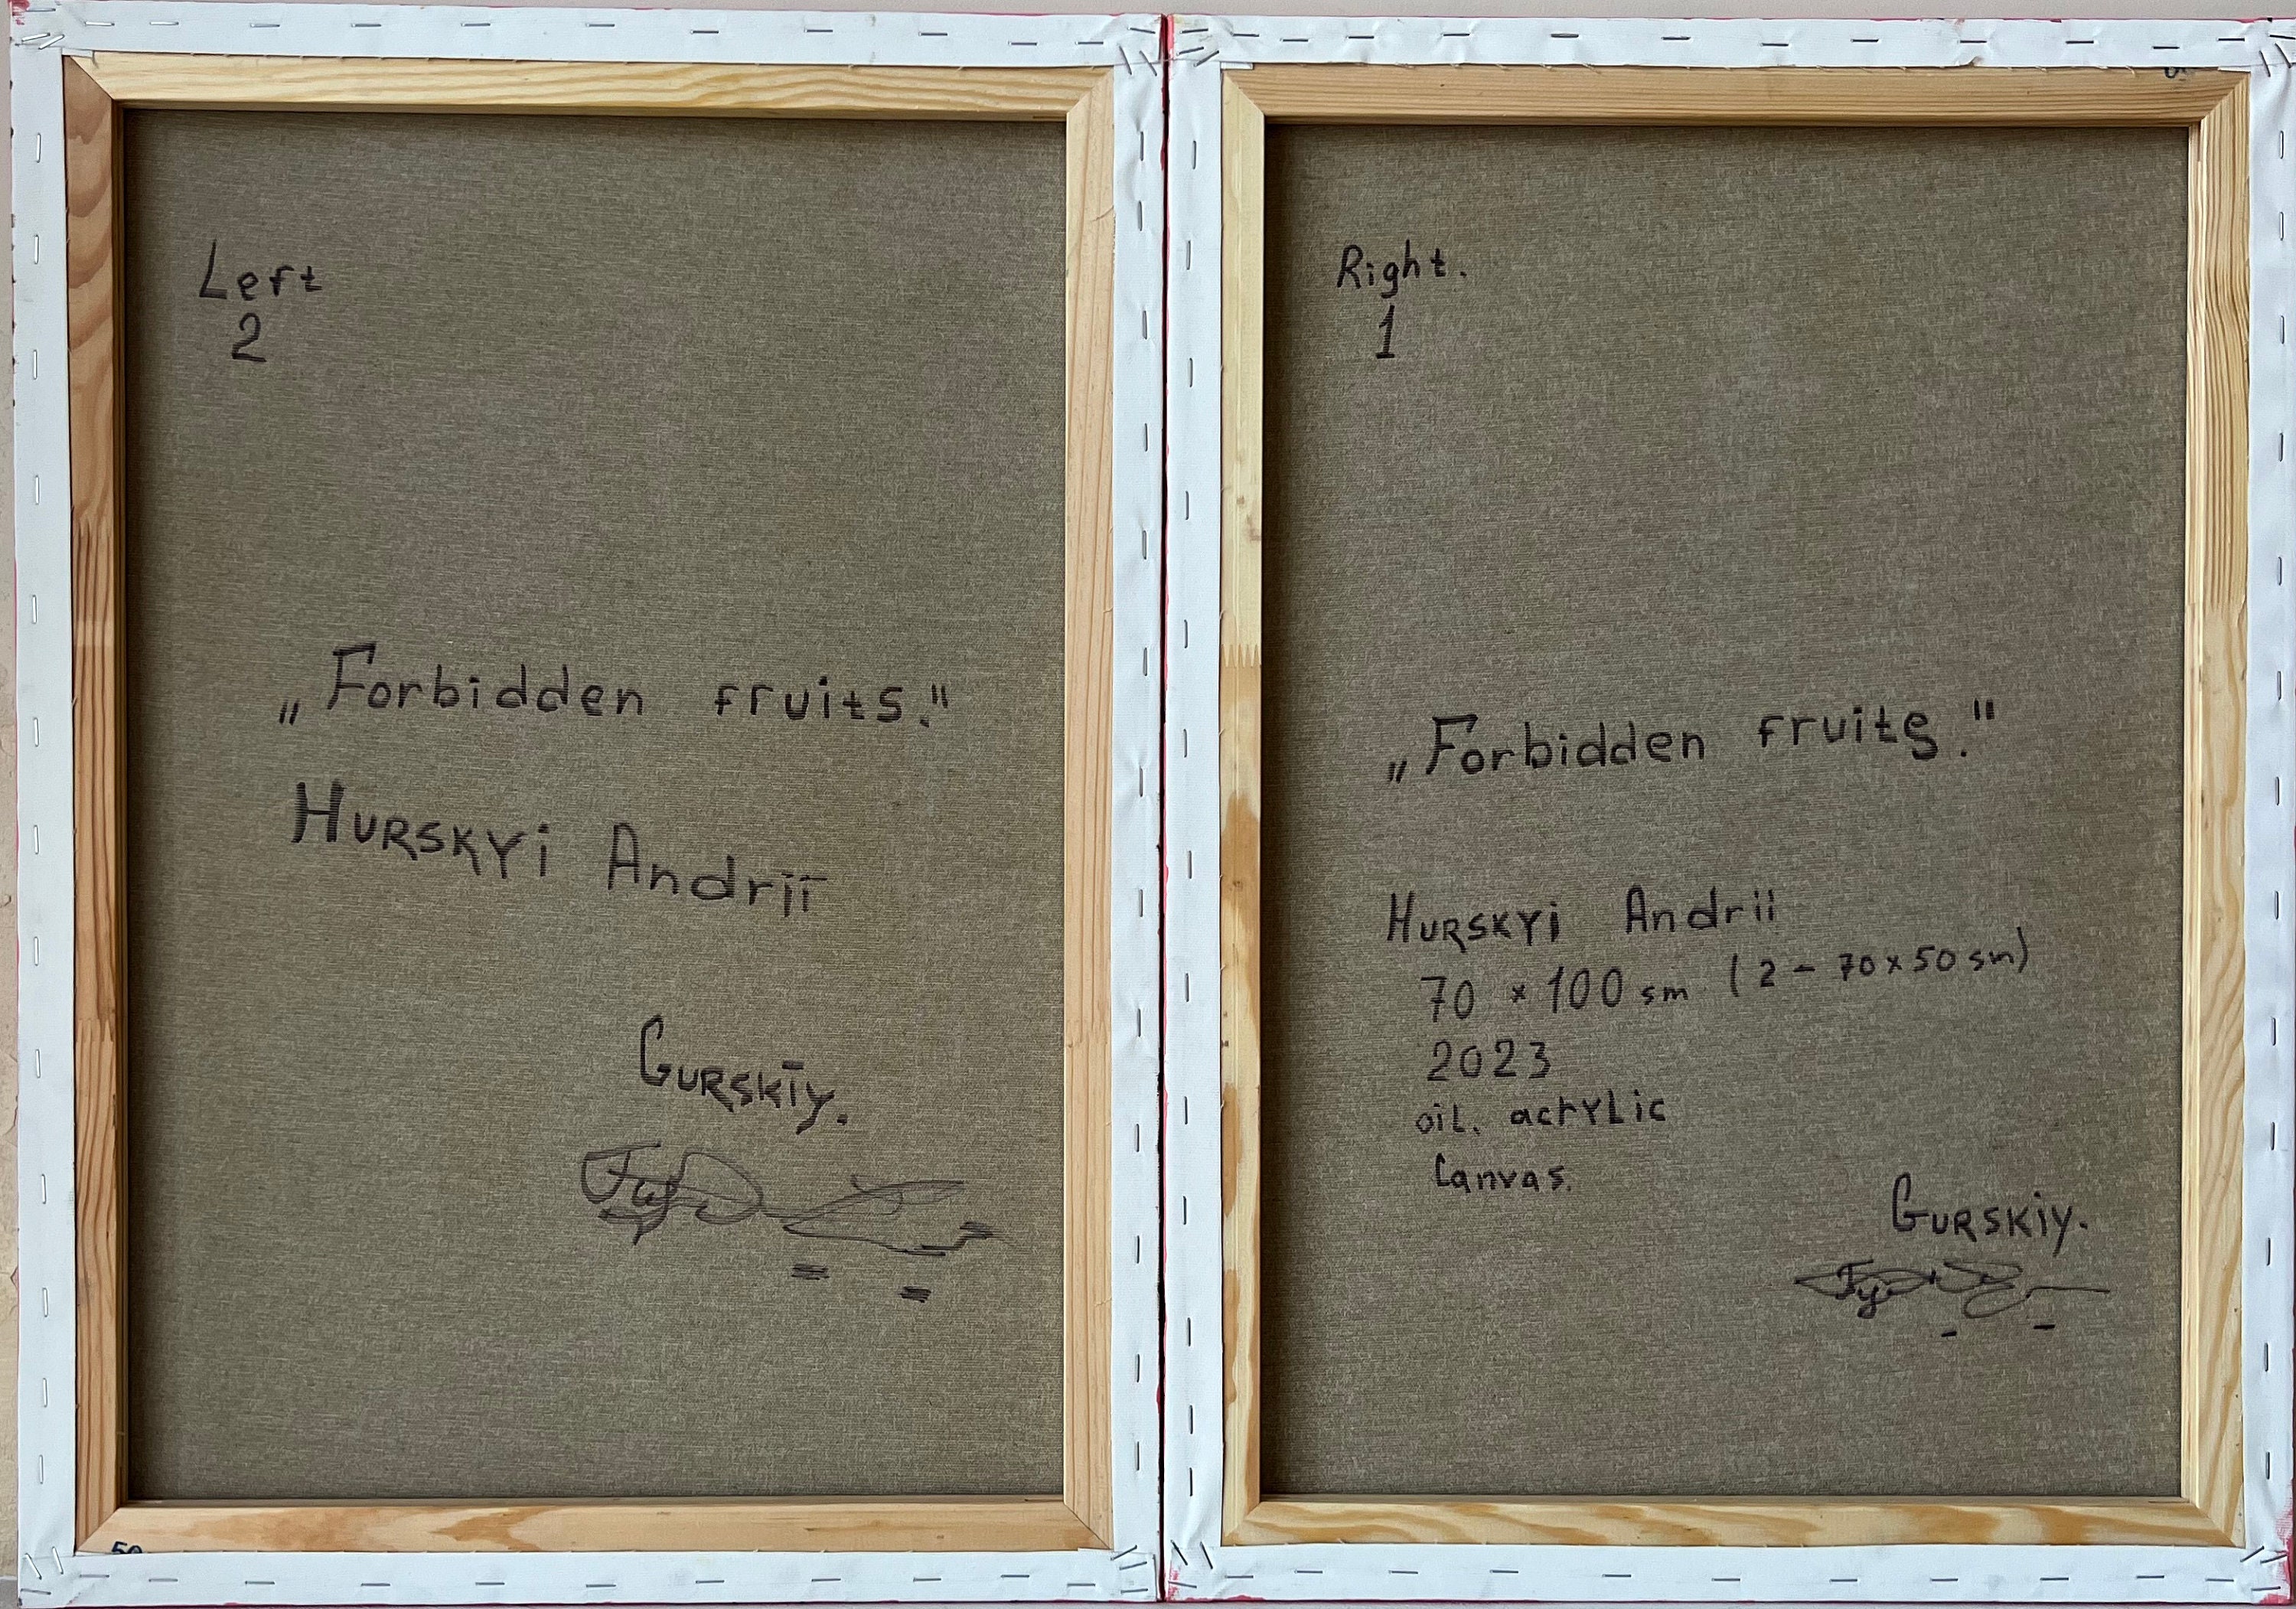 Left
2
„Forbidden fruits."
HURSKYi Andrii
GURSKiy.
50
Right.
1
„Forbidden fruits."
HURSKYi Andrii
70 × 100 sm (2 - 70×50 sm)
2023
oil. acrylic
Canvas.
GURSKiy.